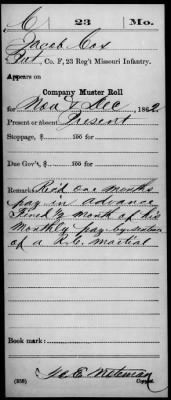 C 23 Mo.
Jacob Cox
Pvt, Co. F, 23 Reg't Missouri Infantry.
Appears on
Company Muster Roll
for Nov & Dec, 1862
Present or absent Present
Stoppage, $ 100 for
Due Gov't, $ 100 for
Remarks: Rec'd one months
pay in advance
Fined ½ month of his
monthly pay by sentence
of a R.C. Martial
Book mark:
(358)
Copyist.